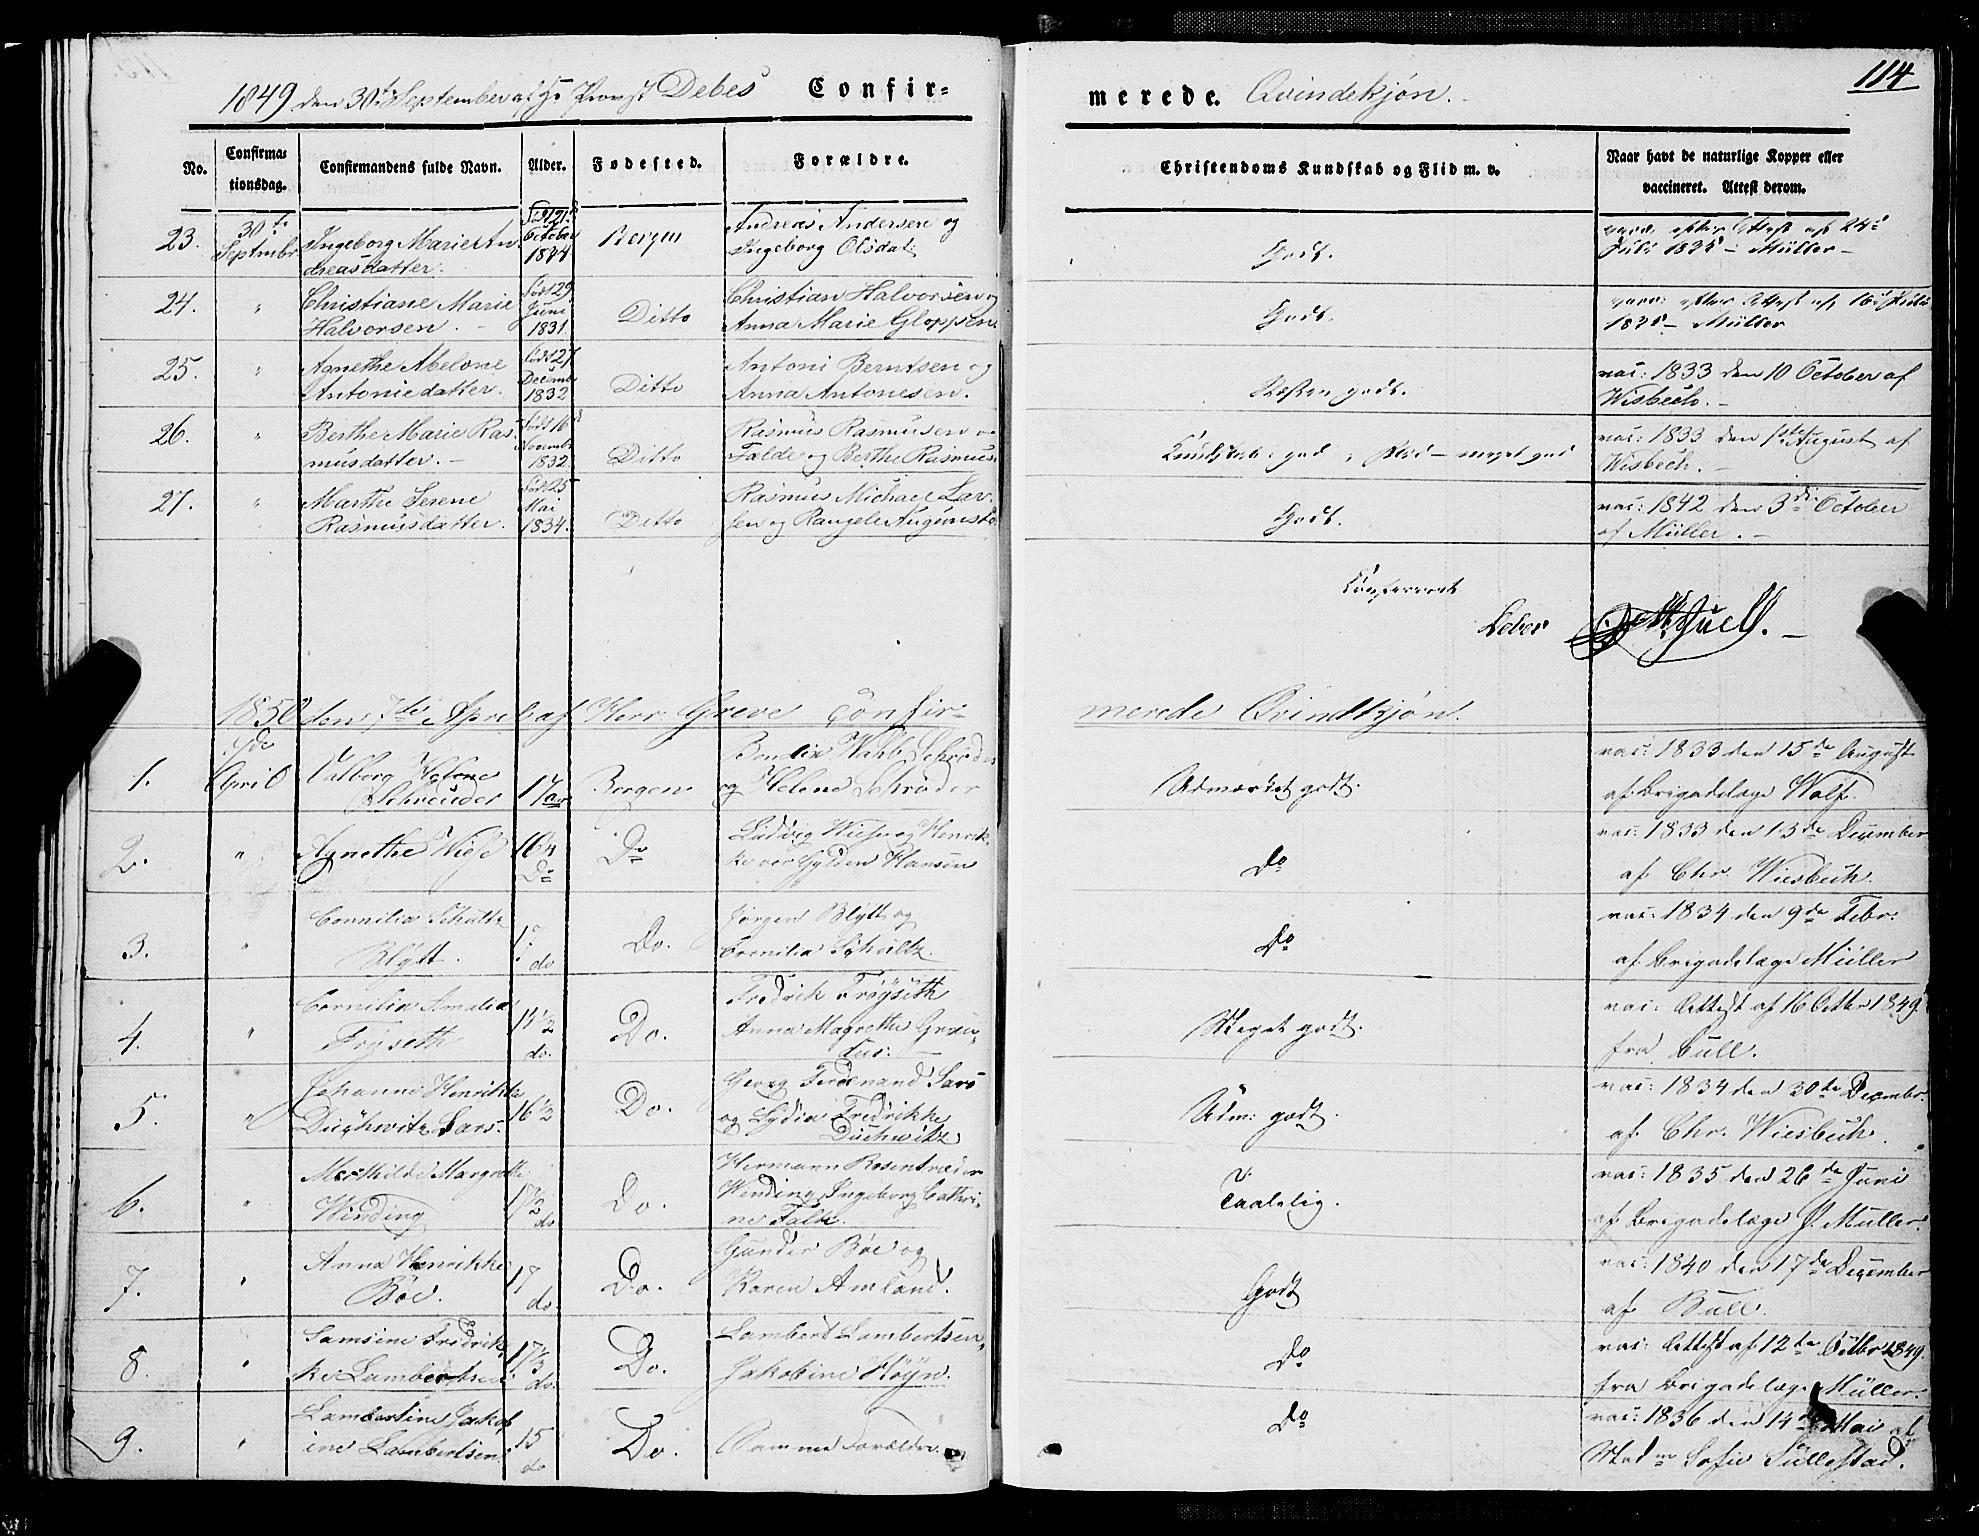 114
1849 den 30te September af Hr Provst Debes Confirmerede. Qvindekjøn.
No. Confirmationsdag. Confirmandens fulde Navn. Alder. Fødested. Forældre. Christendoms Kundskab og Flid m. v. Naar havt de naturlige Kopper eller vaccineret. Attest derom.
23. 30te Septembr Ingeborg Marie An
dreasdatter. Født 21de October 1834 Bergen Andreas Andersen og
Ingeborg Olsdat: Godt. vacc. efter Attest af 24de
Juli 1835 – Müller –
24. " Christiane Marie
Halvorsen. – Født 29 Juni 1831. Ditto Christian Halvorsen og
Anna Marie Gloppen Godt. vacc: efter Attest af 16de
1835 – Müller
25. " Agnethe Abelone
Antoniedatter. Født 27 Decemb 1832 Ditto Antoni Berntsen og
Anna Antonesen. Næsten godt. vac: 1833 den 10 October af
Wisbech. –
26. " Berthe Marie Ras
musdatter. – Født 16 Novemb 1832 Ditto Rasmus Rasmusen
Falde og Berthe Rasmus Kundskab: god, Flid – meget god vac: 1833 den 1ste August af
Wisbech. –
27. " Marthe Serene
Rasmusdatter. Født 25 Mai 1834. Ditto Rasmus Michael Lar
sen og Rangele August Godt. vac: 1842 den 3de October
af Müller. –
Confereret
Debes
1850 den 7de April af Herr Greve Confirmerede Qvindkjøn.
1. 7de April Valborg Helene
Schreuder 17 aar Bergen Bendix Wahl Schrøder
og Helene Schrøder Udmærket godt. vac: 1833 den 15de August
af Brigadelæge Wolf.
2. " Agnethe Wiese 16¼ Do Ludvig Wiese og Henrik
ke von Gylden Hansen Do vac: 1833 den 13de December
af Chr. Wiesbech.
3. " Cornilia Schultz
Blytt. do Do. Jørgen Blytt og
Cornilia Schultz. Do vac: 1834 den 9de Febr:
af Brigadelæge Müller
4. " Cornilia Amalia
Frøyseth do. Do. Fredrik Frøyseth
Anna Magrethe Gran-
dus. – Meget godt. vac: Attest af 16 Octbr 1849.
fra Bull.
5. " Johanne Henrikke
Duchwitz Sars. 16½ Do. Georg Ferdenand Sars
og Lydia Fredrikke
Duchwitz Udm: godt. vac: 1834 den 30te Decembr.
af Chr. Wiesbech.
6. " Methilde Margrethe
Winding 17½ do Do. Hermann Rosentræder
Winding, Ingeborg Cathri-
ne Falk. Taalelig. vac: 1835 den 26de Juni
af Brigadelæge J. Müller.
7. " Anna Henrikke
Böe. 17 do. Do. Gunder Böe og
Karen Amland. Godt vac: 1840 den 17de December
af Bull.
8. " Samsine Fredrik
ke Lambertsen 17⅓ do. Do. Lambert Lambertsen,
Jakobine Höyn. Do vac: Attest af 12te Octbr 1849.
fra Brigadelæge Müller.
9. " Lambertine Jakob
ine Lambertsen 15 do Do. Samme Forældre. Do vac: 1836 den 14de Mai af
Mad m Sofie Tüllestad.